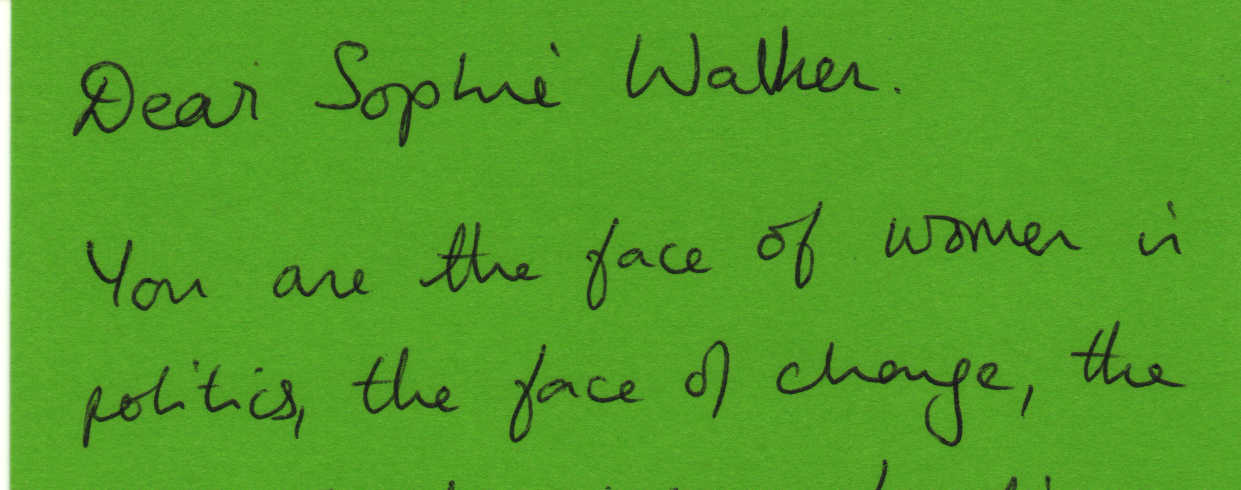 Dear Sophie Walker.
You are the face of women in
politics, the face of change, the